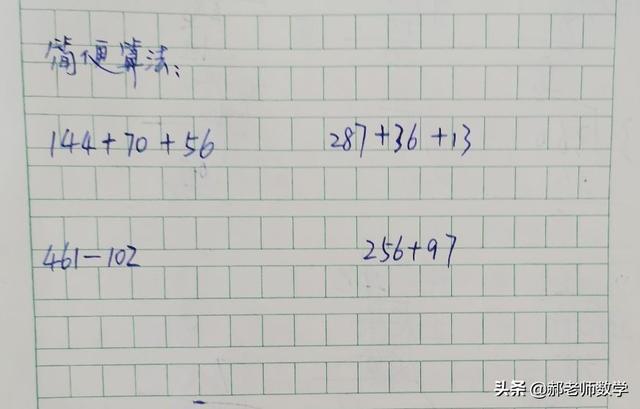 简便算法：
144+70+56 287+36+13
461-102 256+97
头条 @郝老师数学